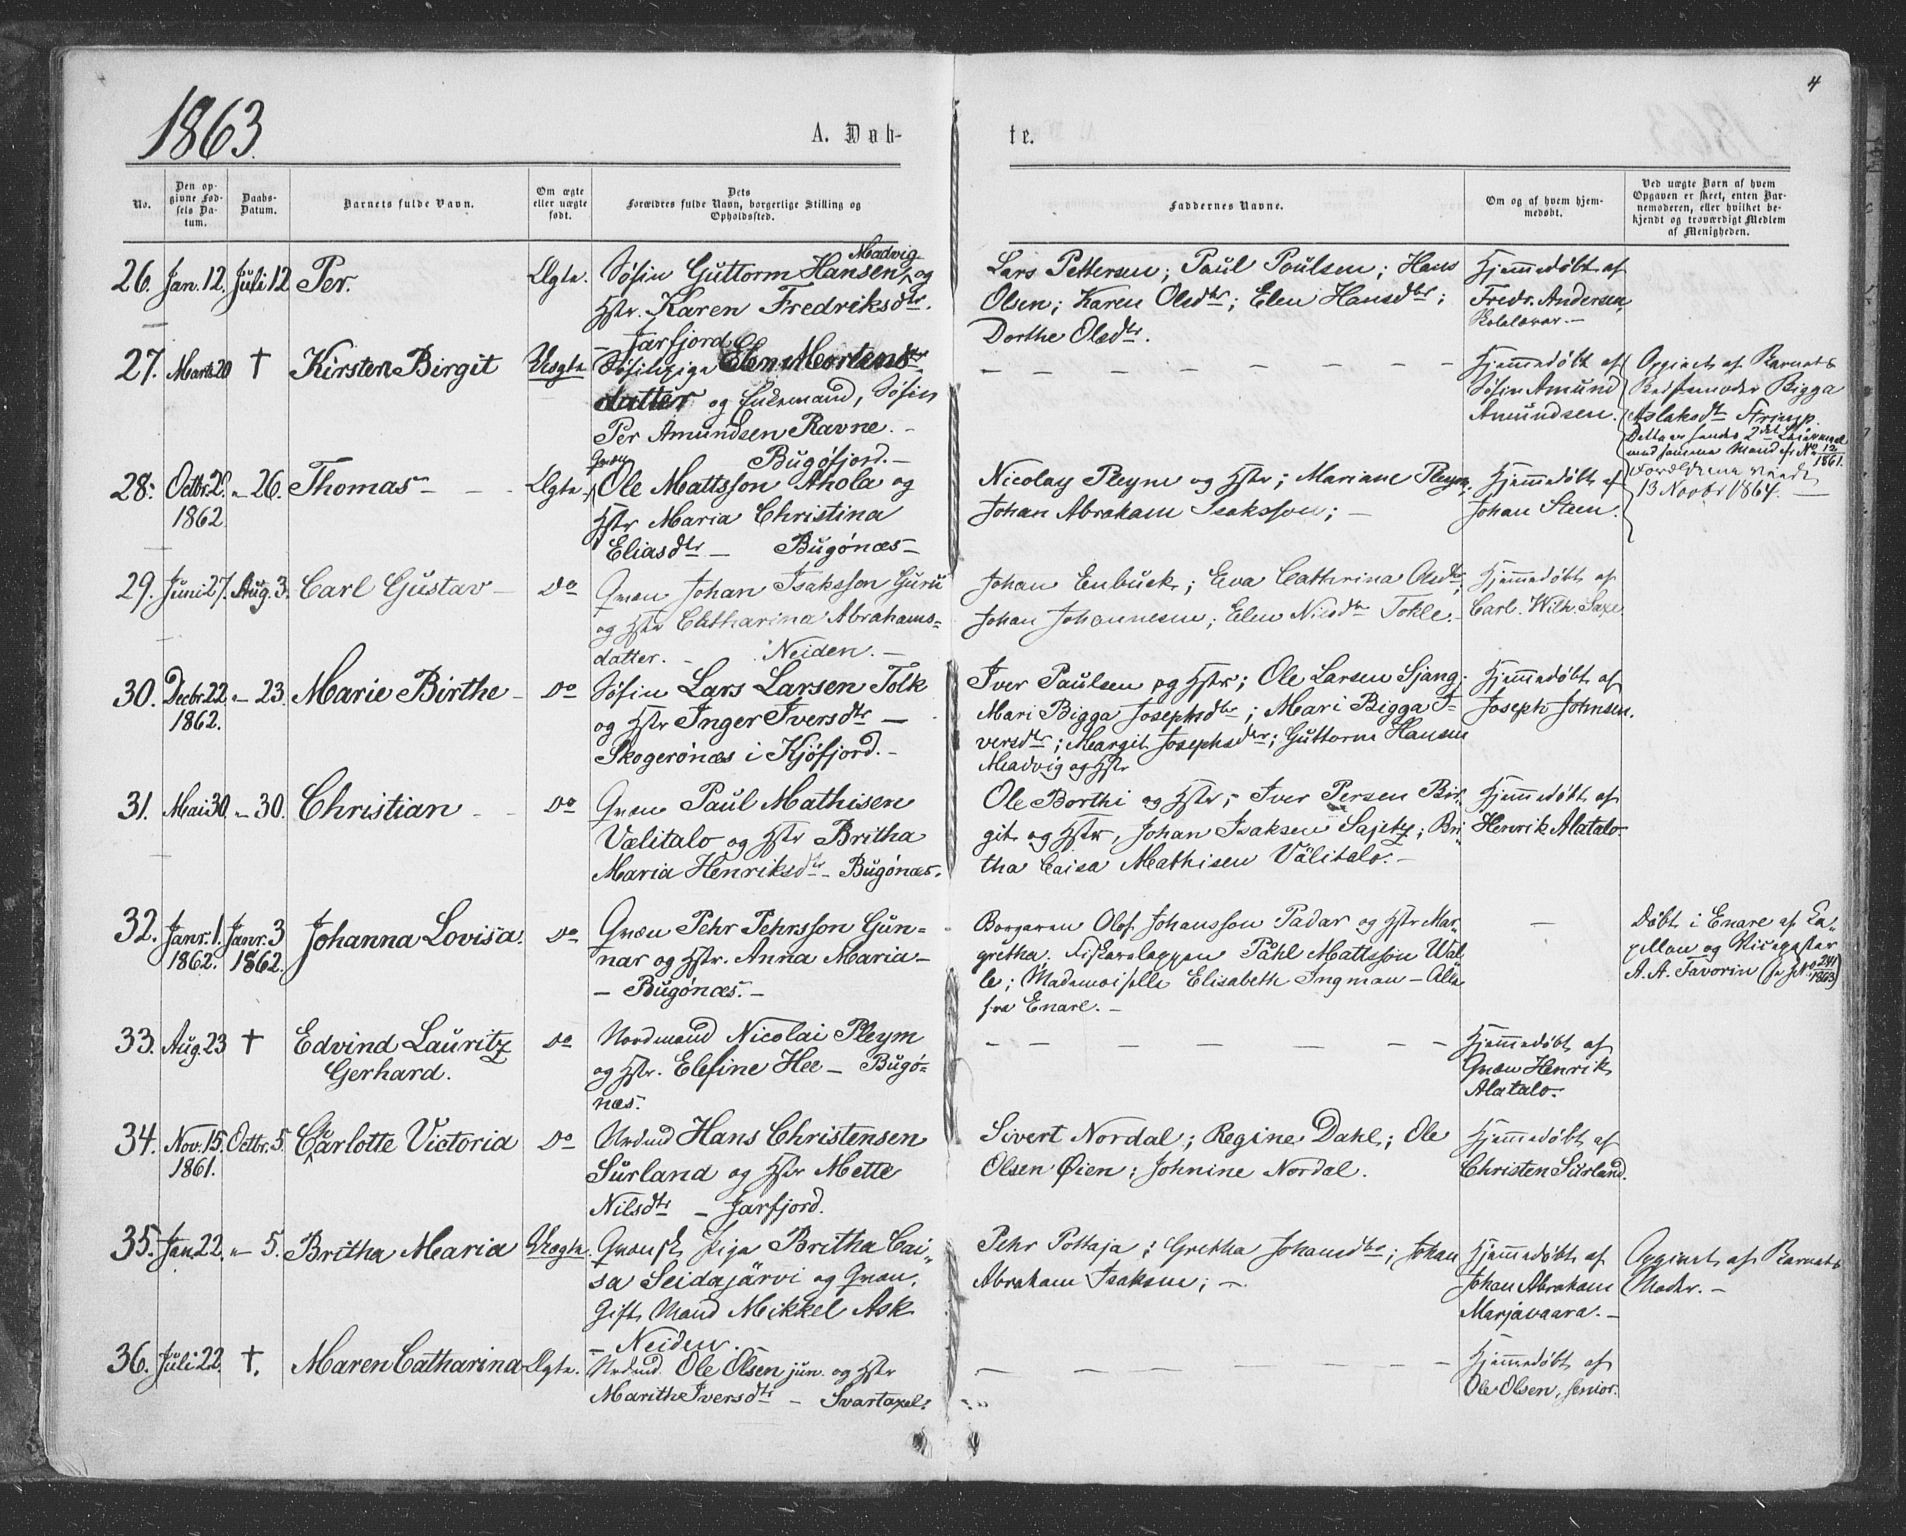 4
1863.
A. Døb-
te.
No.
Den op-
givne Fød-
sels Da-
tum.
Daabs-
Datum.
Barnets fulde Navn.
Om ægte
eller uægte
født.
Dets
Forældres fulde Navn, borgerlige Stilling og
Opholdssted.
Faddernes Navne.
Om og af hvem hjem-
medøbt.
Ved uægte Børn af hvem
Opgaven er skeet, enten Bar-
nemoderen, eller hvilket be-
kjendt og troværdigt Medlem
af Menigheden.
26. Jan. 12. Juli 12 Per. Ægte.
Madvig
Søfin Guttorm Hansen, og
Hstr. Karen Fredriksdtr.
– Jarfjord.
Lars Pettersen; Paul Poulsen; Hans
Olsen; Karen Olsdtr; Elen Hansdtr;
Dorthe Olsdtr.
Hjemmedøbt af
Fredr. Andersen,
Skolelærer. –
27. Marts 20 † Kirsten Birgit Uægte
Søfinpige Elen Mortens
datter og Enkemand, Søfin
Per Amundsen Ravne. –
Bugøfjord. –
– – – – – – –
Hjemmedøbt af
Søfin Amund
Amundsen.
Opgivet af Barnets
Bedstemoder Bigga
Aslaksdt Strimp.
Dette er hendes 2det Leiermaal
med samme Mand cfr No 12/1861.
Forældrene viede
13 Novbr 1864. –
28. Octbr. 20. " 26. Thomas – – – Ægte
1862.
Qvæn
Ole Mattsson Ahola og
Hstr Maria Christina
Eliasdtr – Bugønæs –
Nicolay Pleym og Hstr; Mariane Pleym;
Johan Abraham Isaksson; –
Hjemmedøbt af
Johan Steen.
29. Juni 27. Aug. 3. Carl Gustav – Do
Qvæn Johan Isaksson Guru
og Hstr Catharina Abrahams-
datter. – Neiden. –
Johan Enbuck; Eva Cathrina Olsdtr;
Johan Johannesen; Elen Nilsdtr Tokle. –
Hjemmedøbt af
Carl. Wilh. Saxe
30. Decbr. 22 " 23. Marie Birthe – Do
1862.
Søfin Lars Larsen Tolk
og Hstr Inger Iversdtr –
Skogerønæs i Kjøfjord. –
Iver Paulsen og Hstr; Ole Larsen Sjang;
Mari Bigga Josephsdtr; Mari Bigga I-
versdtr; Margit Josephsdtr; Guttorm Hansen
Madvig og Hstr
Hjemmedøbt af
Joseph Johnsen.
31. Mai 30. " 30. Christian – – Do
Qvæn Paul Mathisen
Vælitalo og Hstr Britha
Maria Henriksdtr – Bugønæs.
Ole Borthi og Hstr; Iver Persen Bir-
git og Hstr, Johan Isaksen Sajetz; Bri-
tha Caisa Mathisen Välitalo. –
Hjemmedøbt af
Henrik Alatalo
32. Janr. 1. Janr. 3 Johanna Lovisa. Do
1862. 1862.
Qvæn Pehr Pehrsson Gun-
nar og Hstr. Anna Maria –
– Bugønæs. –
Borgaren Olof Johansson Padar og Hstr Mar-
gretha. Fiskarelappen Påhl Mattsson Wal-
le; Mademoiselle Elisabeth Ingman – Alla
fra Enare. –
–
Døbt i Enare af Ca-
pellan og Vicepastor
A. A. Favorin (se J No 241/1863)
33. Aug. 23 † Edvind Lauritz Do
Gerhard.
Nordmand Nicolai Pleym
og Hstr. Elefine Hee – Bugø-
næs.
– – – – – – –
Hjemmedøbt af
Qvæn Henrik
Alatalo.
34. Nov. 15. Octbr. 5. Charlotte Victoria Do
1861.
Nrdmd Hans Christensen
Surland og Hstr Mette
Nilsdtr – Jarfjord.
Sivert Nordal; Regine Dahl; Ole
Olsen Øien; Johnine Nordal.
Hjemmedøbt af
Christen Surland.
35. Jan. 22. " 5. Britha Maria Uægte.
Qvænsk Pige Britha Cai-
sa Seidajärvi og Qvæn,
Gift Mand Mikkel Ask
– Neiden.
Pehr Pottaja; Gretha Johansdtr; Johan
Abraham Isaksen; –
Hjemmedøbt af
Johan Abraham
Marjavaara. –
Opgivet af Barnets
Moder. –
36. Juli 22. †. Maren Catharina Ægte.
Nrdmd. Ole Olsen jun. og Hstr
Marith Iversdtr – Svartaxel.
– – – – – – –
Hjemmedøbt af
Ole Olsen, senior.